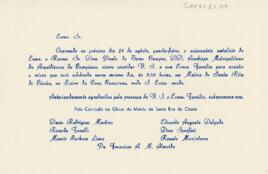 Exmo. Sr.
Ocorrendo no próximo dia 24 de agosto, quarta-feira, o aniversário natalício do
Exmo. e Revmo. Sr. Dom Paulo de Tarso Campos, DD. Arcebispo Metropolitano
da Arquidiocese de Campinas, vimos convidar V. S. e sua Exma. Família para assistir
a missa que será celebrada nesse mesmo dia, às 9,00 horas, na Matriz de Santa Rita
de Cássia, no Bairro da Nova Campinas, onde S. Excia.
Antecipadamente agradecidos pela presença de V. S. e Exma. Família, subscrevemo-nos,
Pela Comissão de Obras da Matriz de Santa Rita de Cássia
Dimas Rodrigues Martins
Eduardo Augusto Delgado
Ricardo
Dino Serafini
Moacir Barbosa Lima
Renato
Dr. Francisco A. M. Almeida